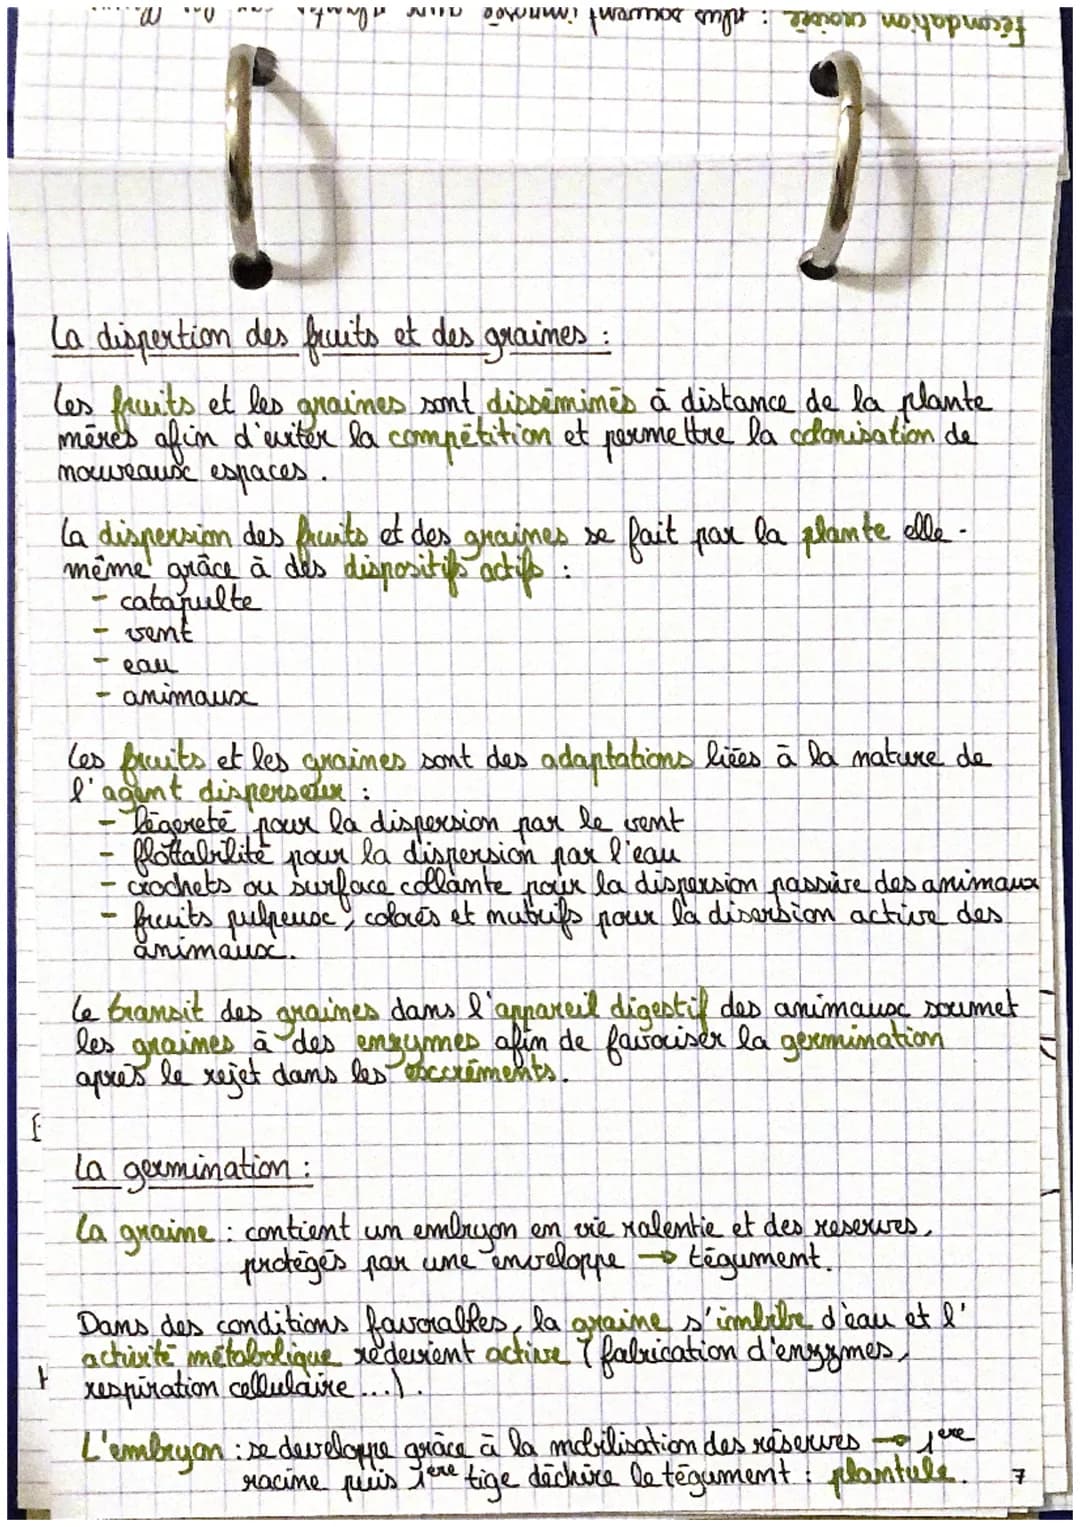 Fécondation croisée : plus souvent imposée aux plantes car les
La dispertion des fruits et des graines :
Les fruits et les graines sont disséminés à distance de la plante
mères afin d'eviter la compétition et permettre la colonisation de
nouveaux espaces.
La dispersion des fruits et des graines se fait par la plante elle-
même grâce à des dispositifs actifs :
- catapulte
- vent
- eau
- animaux
Les fruits et les graines sont des adaptations liées à la nature de
l'agent disperseur :
- légereté pour la dispersion par le vent
- flottabilité pour la dispersion par l'eau
- crochets ou surface collante pour la dispersion passive des animaux
- fruits pulpeux, colorés et nutrifs pour la disersion active des
animaux.
Le transit des graines dans l'appareil digestif des animaux soumet
les graines à des enzymes afin de favoriser la germination
après le rejet dans les excréments.
La germination :
La graine : contient un embryon en vie ralentie et des reserves,
protégés par une enveloppe → tégument.
Dans des conditions favorables, la graine s'imbibe d'eau et l'
activité métabolique redevient active (fabrication d'enzymes,
respiration cellulaire ...).
L'embryon : se developpe grâce à la mobilisation des réserves → 1ere
racine puis 1ere tige déchire le tégument : plantule.
7